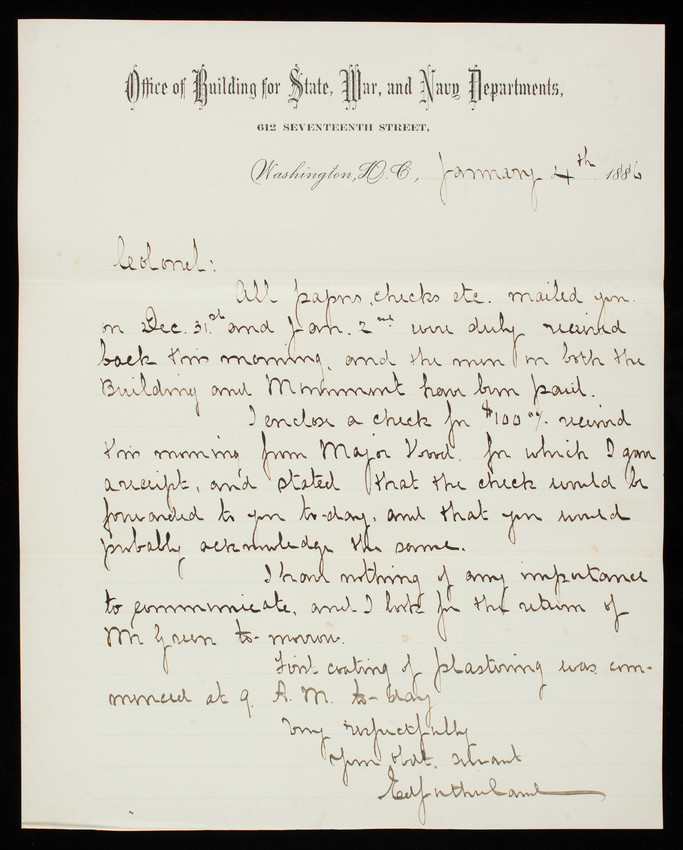 Office of Building for State, War, and Navy Departments,
612 SEVENTEENTH STREET,
Washington, D.C., January 4th 1886
Colonel:
All papers, checks etc. mailed you
on Dec. 31st and Jan. 2nd were duly received
back this morning, and the men on both the
Building and Monument have been paid.
I enclose a check for $100 received
this morning from Major for which I gave
a receipt, and stated that the check would be
forwarded to you to-day, and that you would
probably acknowledge the same.
I have nothing of any importance
to communicate, and I look for the return of
Mr Green to-morrow.
First coating of plastering was com-
menced at 9. A.M. to-day
Very respectfully
Your Obdt. servant
Ed Sutherland